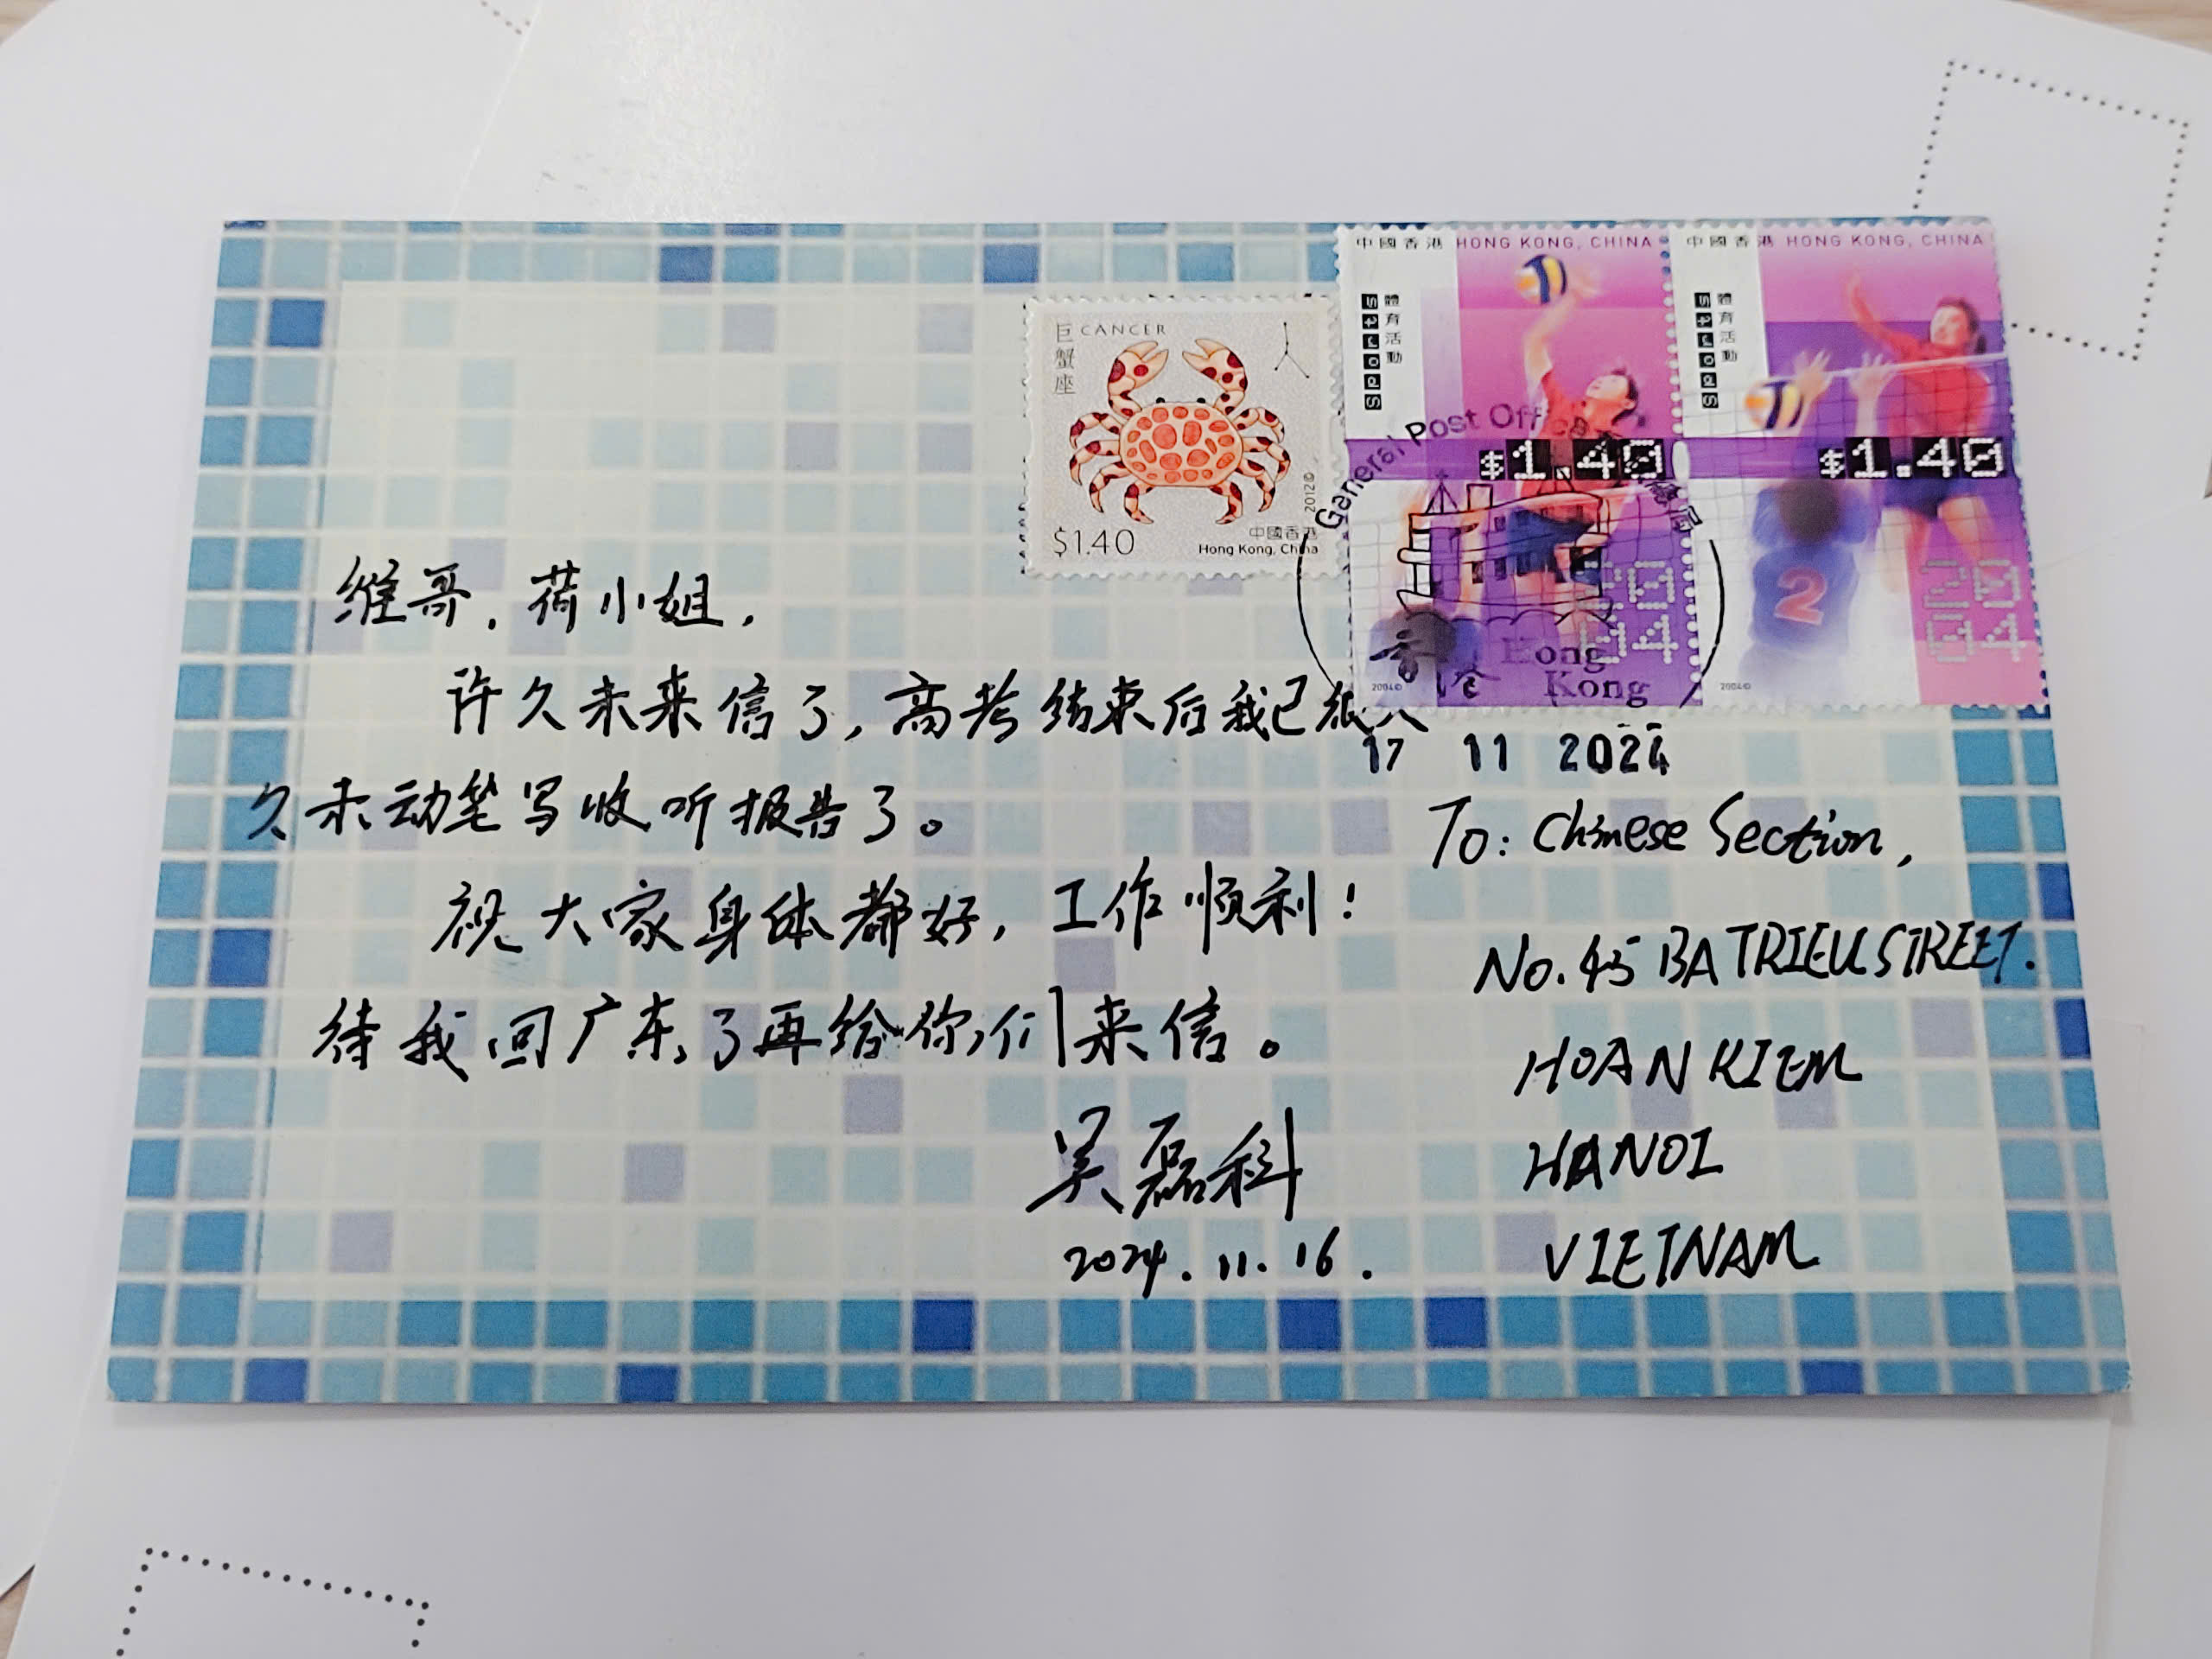 中國香港 HONG KONG, CHINA
中國香港 HONG KONG, CHINA
Sports
體育活動
Sports
體育活動
巨蟹座
CANCER
$1.40
2012©
中國香港
Hong Kong, China
$1.40
$1.40
2
2004©
2004©
General Post Office
香港
Hong
Kong
17 11 2024
维哥,荷小姐,
许久未来信了,高考结束后我已很久
久未动笔写收听报告了。
祝大家身体都好,工作顺利!
待我回广东了再给你们来信。
吴磊科
2024.11.16.
To: Chinese Section,
No.45 BA TRIEU STREET.
HOAN KIEM
HANOI
VIETNAM